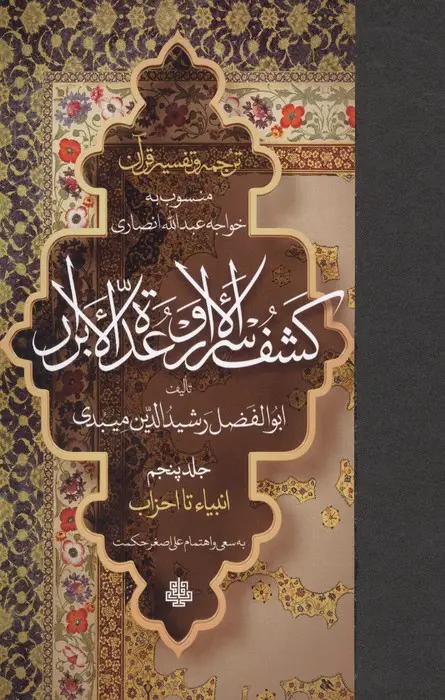 ترجمه و تفسیر قرآن
منسوب به
خواجه عبدالله انصاری
کشف الأسرار و عدّة الأبرار
تألیف
ابوالفضل رشیدالدّین میبدی
جلد پنجم
انبیاء تا احزاب
به سعی و اهتمام علی اصغر حکمت